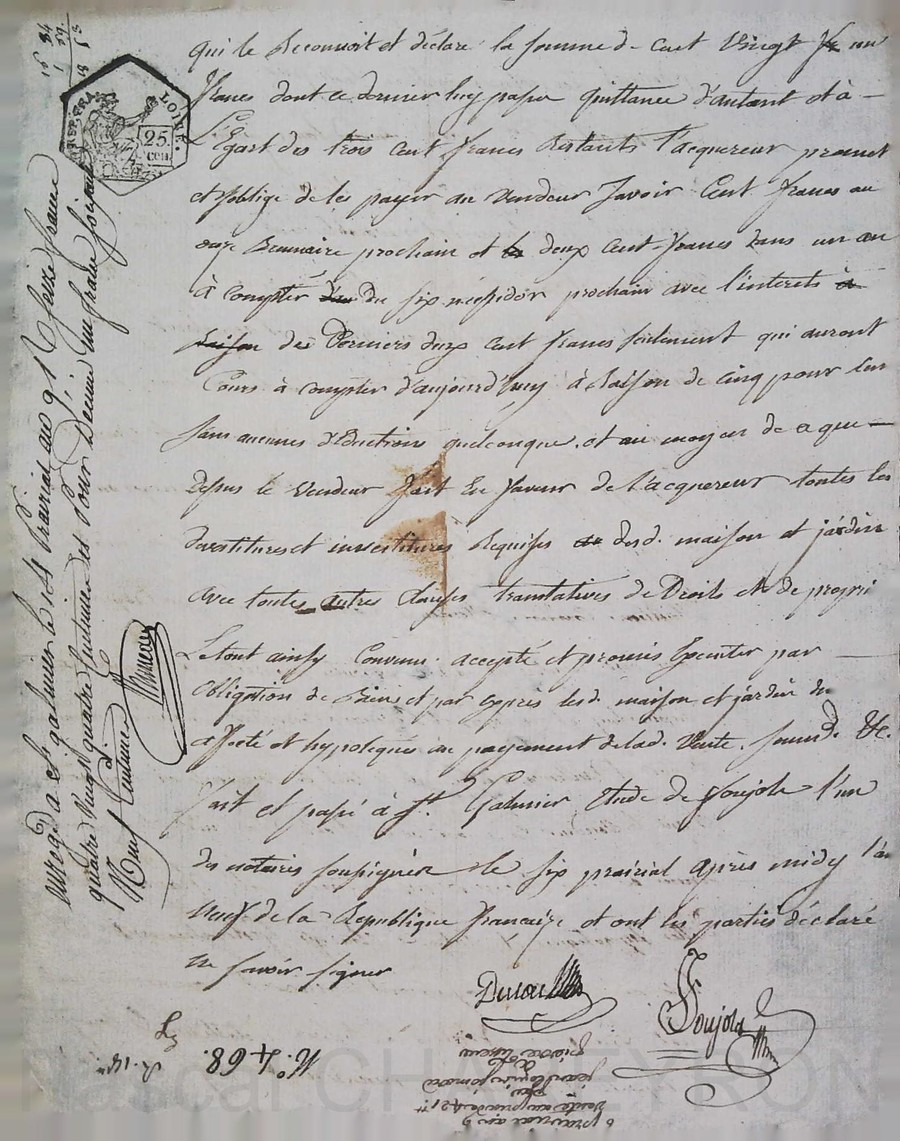 qui le Reconnoit et déclare la somme de Cent Vingt un
francs dont ce dernier luy passe quittance d'autant et à
L'Egart des trois Cent francs Restants l'acquereur promet
et s'oblige de les payer au Vendeur Savoir Cent francs au
onze Brumaire prochain et deux Cent francs dans un an
à compter du six messidor prochain avec l'interets à
raison des derniers deux Cent francs seulement qui auront
Cours à compter d'aujourd'huy à Raison de cinq pour Cen
sans aucunes déductions quelconque, et au moyen de ce que
depsus le Vendeur fait En faveur de l'acquereur toutes les
devestitures et investitures Requises desd. maison et jardin
avec toutes autres Clauses translatives de Droits et de propri
Le tout ainsy Convenu accepté et promis Executer par
obligation de Biens et par exprès lesd. maison et jardin
affecté et hypotequés au payement de lad. Vente. &c.
fait et passé à St. Galmier Etude de Soujols l'un
des notaires soussignés le six prairial après midy l'an
Neuf de la Republique francaise et ont les parties déclaré
Ne savoir signer
Soujols
N.° 468.
enregd. à St galmier le six Prairial an 9 Rl seize francs
quatre Vingt quatre Centimes et pour Decime une franc soixante
Neuf Centimes
LOIRE.
25.
cen
Pascal CHAMEYRON